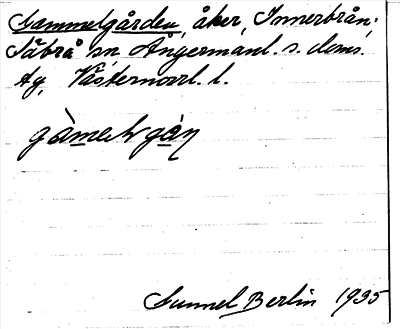 Gammelgården, åker, Innerbrån,
Säbrå sn, Ångermanl. s. doms.
ag, Västernorrl. l.
Gunnel Berlin 1935